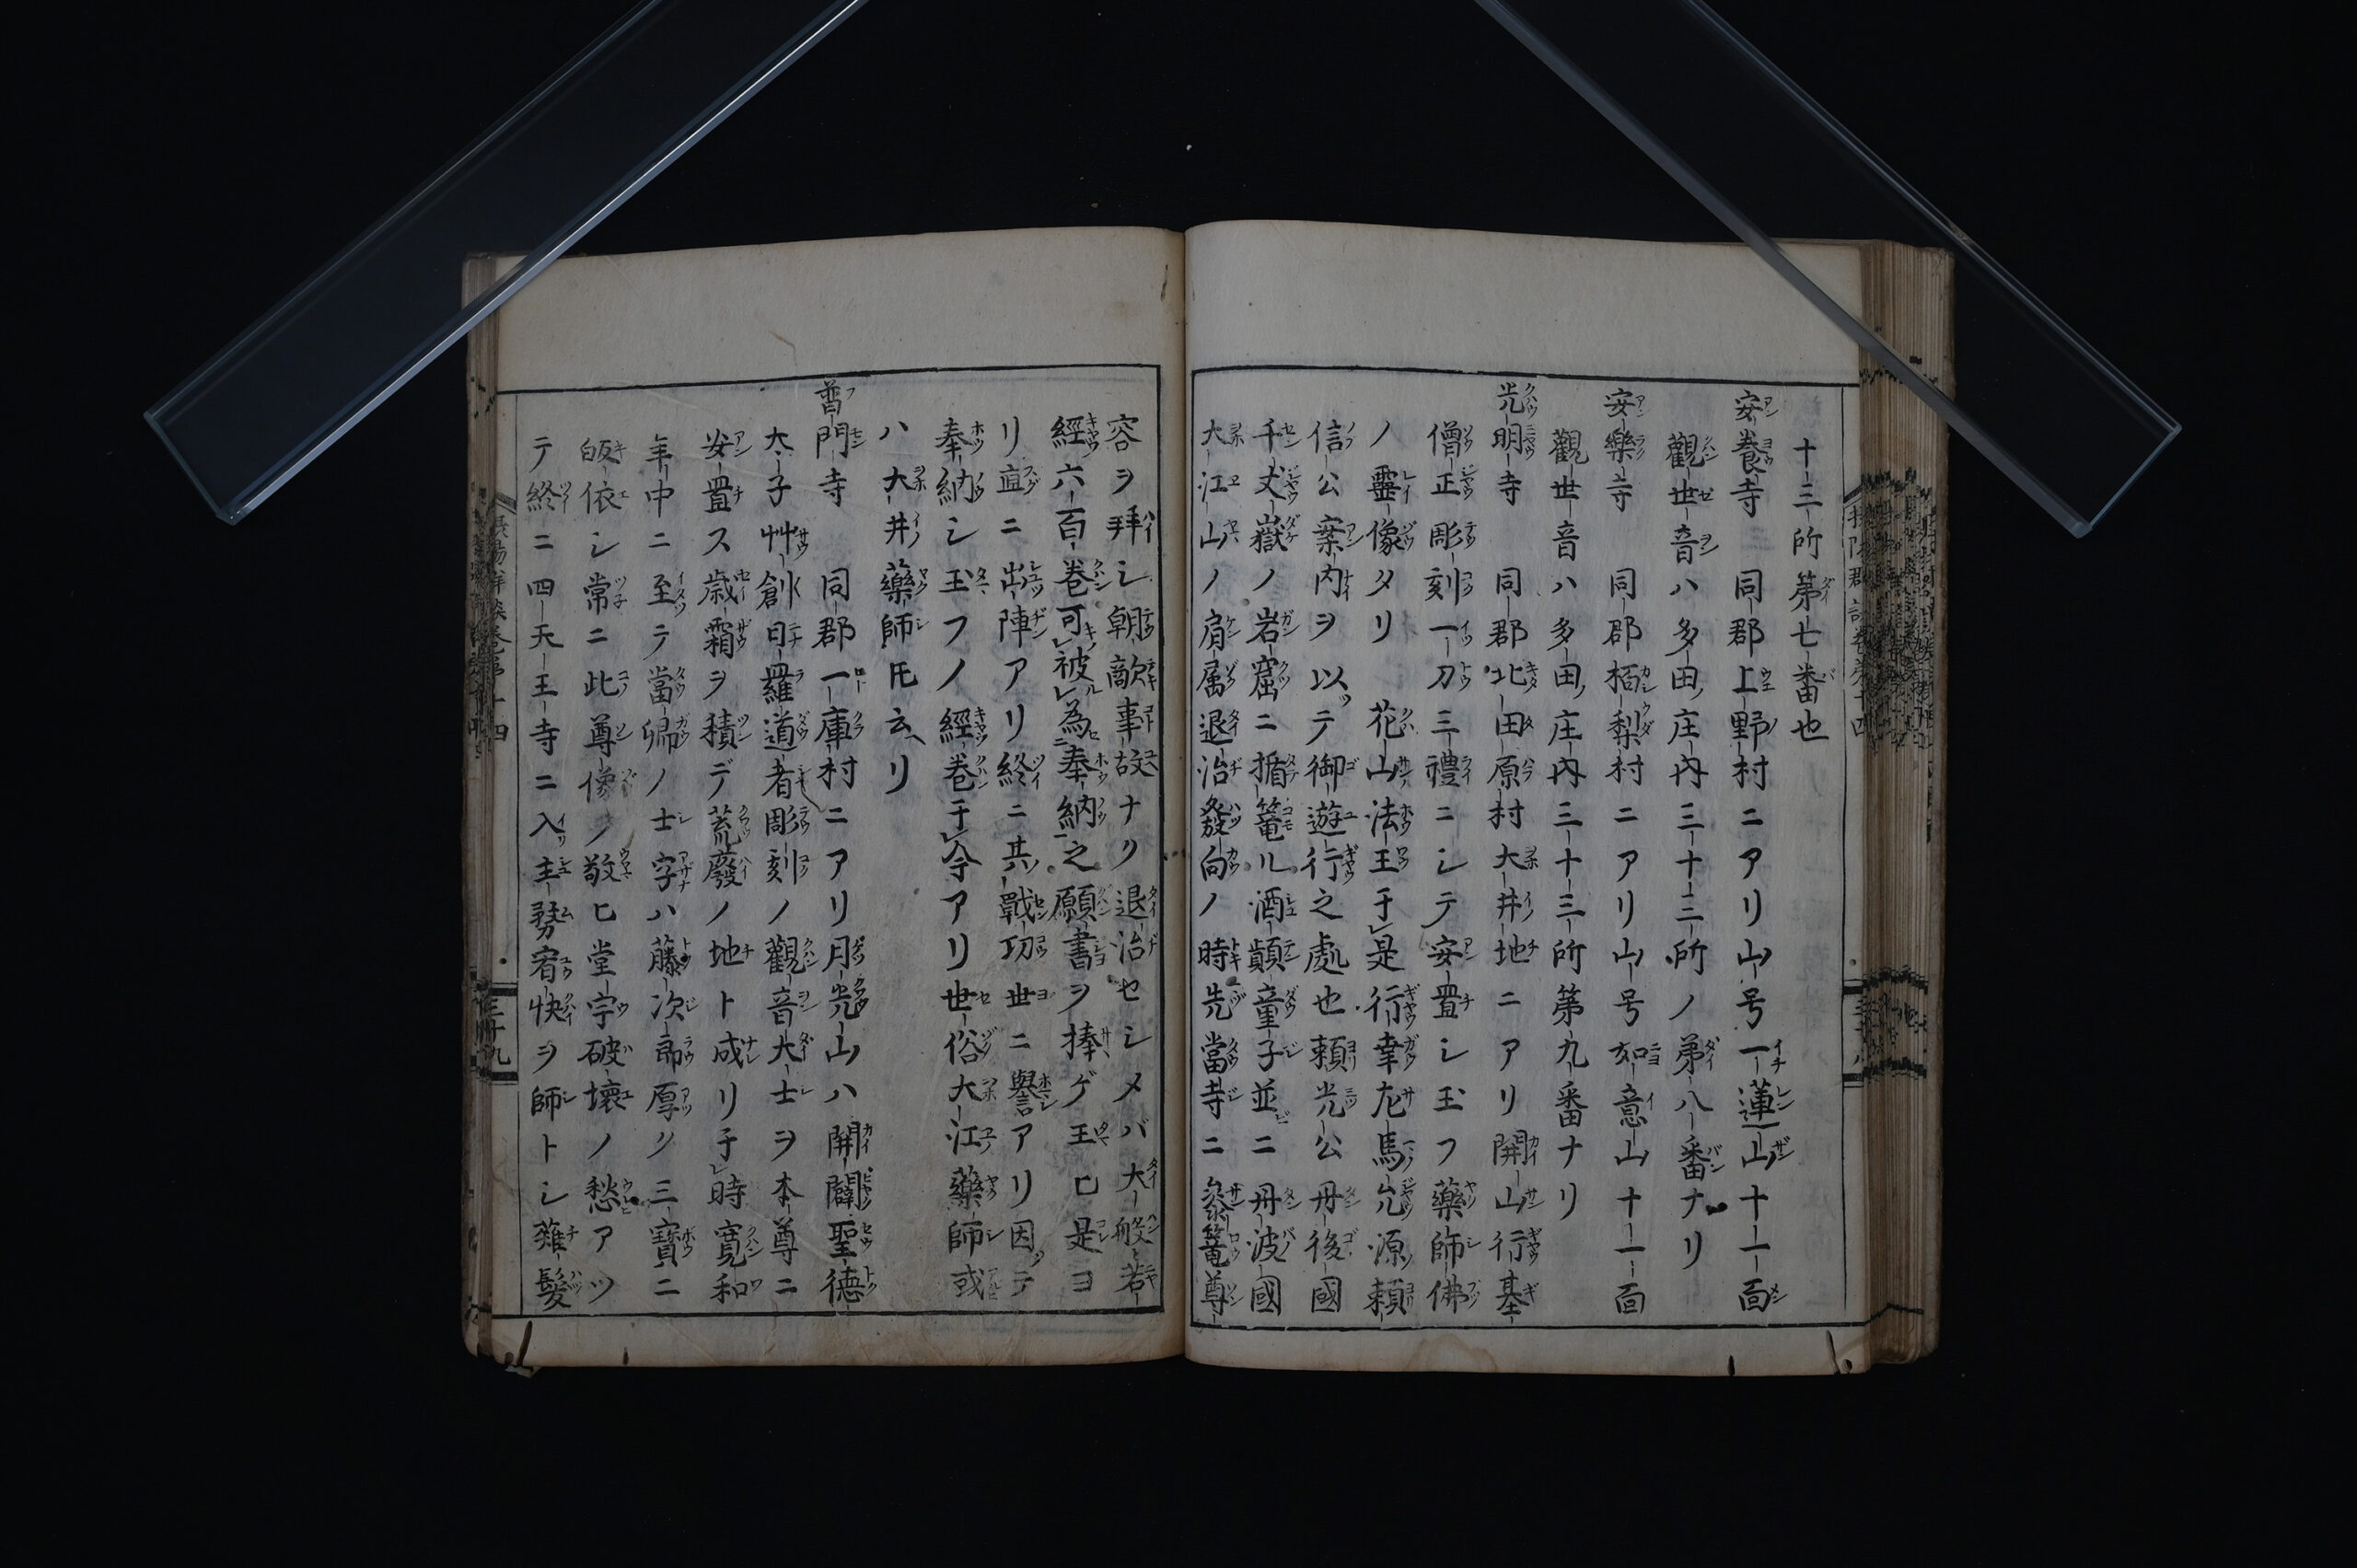 十三所第七番也
安養寺　同郡上野村ニアリ山号一蓮山十一面
觀世音ハ多田庄内三十三所ノ第八番ナリ
安樂寺　同郡栢梨村ニアリ山号如意山十一面
觀世音ハ多田庄内三十三所第九番ナリ
光明寺　同郡北田原村大井地ニアリ開山行基
僧正彫刻一刀三禮ニシテ安置シ玉フ藥師佛
ノ靈像タリ　花山法王于是行幸左馬允源頼
信公案内ヲ以テ御遊行之處也頼光公丹後國
千丈嶽ノ岩窟ニ楯篭ル酒顛童子並ニ丹波國
大江山ノ肩属退治發向ノ時先當寺ニ參篭尊
容ヲ拜シ朝敵事故ナク退治セシメバ大般若
經六百巻可被為奉納之願書ヲ捧ゲ玉ヒ是ヨ
リ直ニ出陣アリ終ニ其戰功世ニ譽アリ因テ
奉納シ玉フノ經巻于今アリ世俗大江藥師或
ハ大井藥師氏云リ
普門寺　同郡一庫村ニアリ月光山ハ開闢聖徳
太子艸創日羅道者彫刻ノ觀音大士ヲ本尊ニ
安置ス歳霜ヲ積デ荒廢ノ地ト成リ于時寛和
年中ニ至テ當郷ノ士字ハ藤次郎厚ク三寳ニ
皈依シ常ニ此尊像ノ敬ヒ堂宇破壊ノ愁アツ
テ終ニ四天王寺ニ入主務宥快ヲ師トシ薙髮
三十九